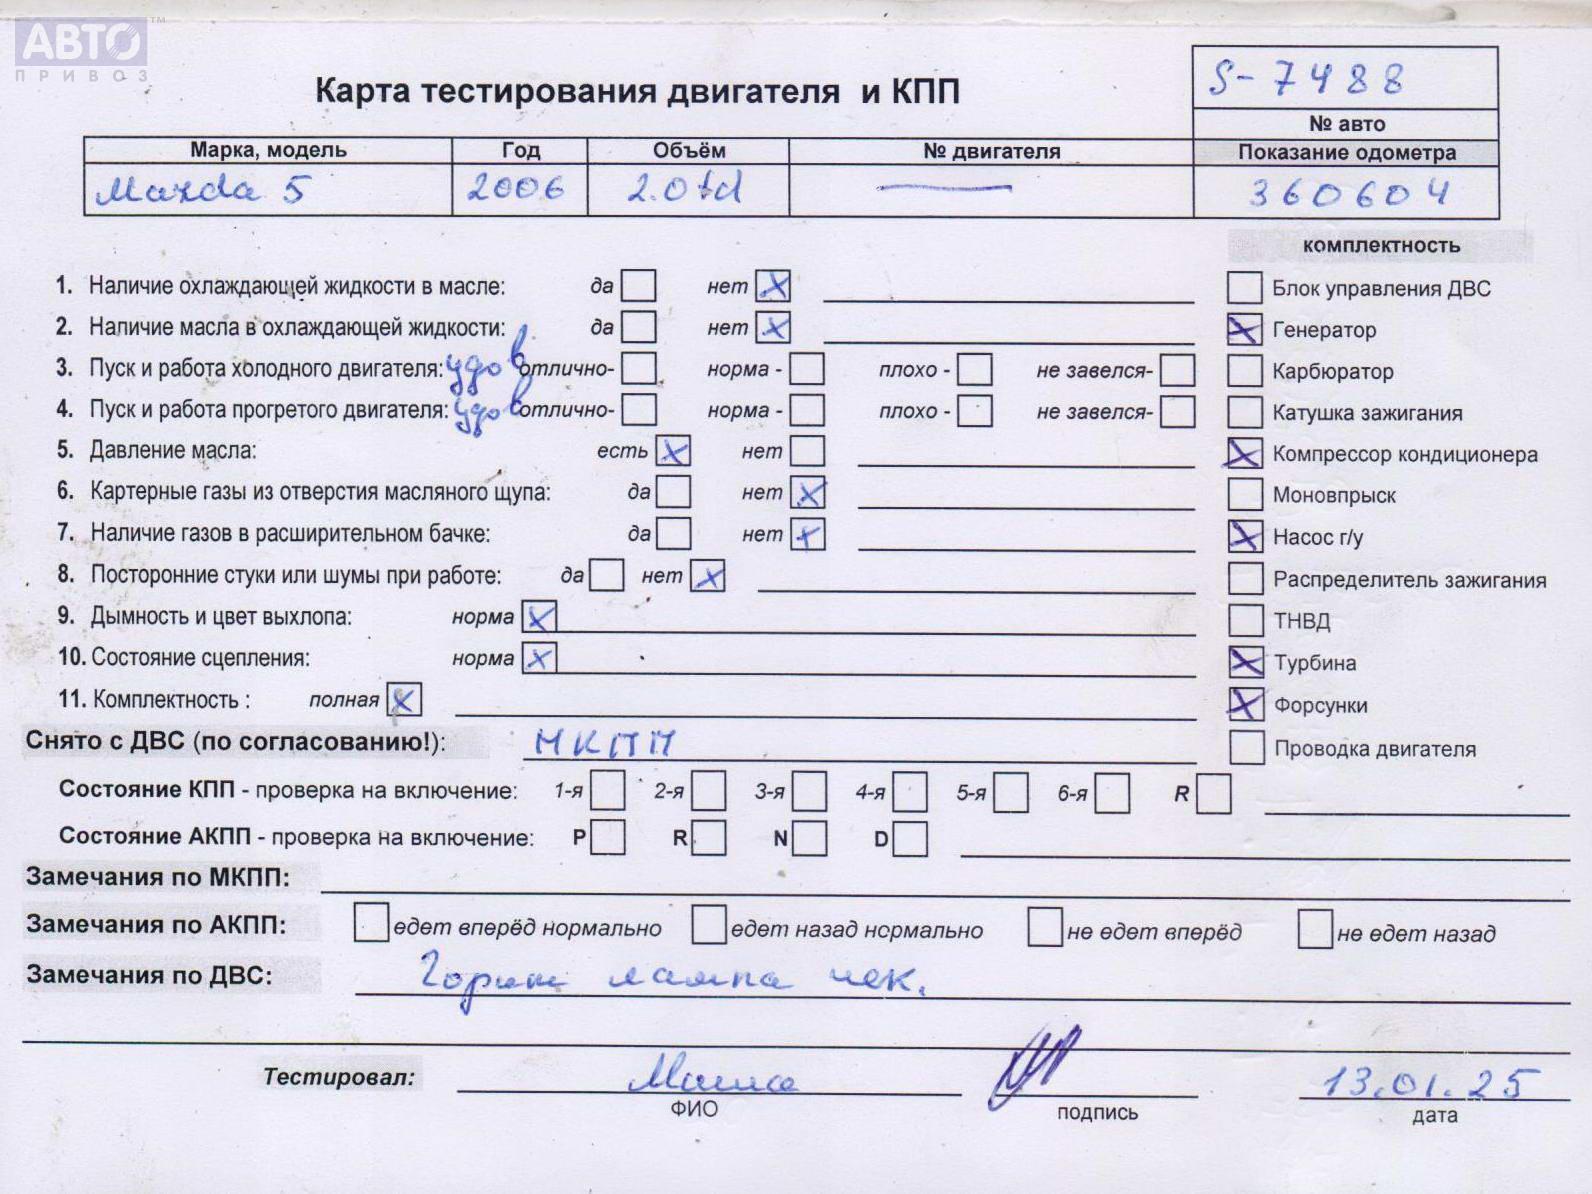 АВТО ТМ
ПРИВОЗ
S-7488
Карта тестирования двигателя и КПП
№ авто
Марка, модель Год Объём № двигателя Показание одометра
Mazda 5 2006 2.0td — 360604
комплектность
1. Наличие охлаждающей жидкости в масле: да нет X Блок управления ДВС
2. Наличие масла в охлаждающей жидкости: да нет X X Генератор
3. Пуск и работа холодного двигателя: удов отлично- норма - плохо - не завелся- Карбюратор
4. Пуск и работа прогретого двигателя: удов отлично- норма - плохо - не завелся- Катушка зажигания
5. Давление масла: есть X нет X Компрессор кондиционера
6. Картерные газы из отверстия масляного щупа: да нет X Моновпрыск
7. Наличие газов в расширительном бачке: да нет X X Насос г/у
8. Посторонние стуки или шумы при работе: да нет X Распределитель зажигания
9. Дымность и цвет выхлопа: норма X ТНВД
10. Состояние сцепления: норма X X Турбина
11. Комплектность : полная X X Форсунки
Снято с ДВС (по согласованию!): МКПП Проводка двигателя
Состояние КПП - проверка на включение: 1-я 2-я 3-я 4-я 5-я 6-я R
Состояние АКПП - проверка на включение: P R N D
Замечания по МКПП:
Замечания по АКПП: едет вперёд нормально едет назад нормально не едет вперёд не едет назад
Замечания по ДВС: Горит лампа чек.
Тестировал: 13.01.25
ФИО подпись дата